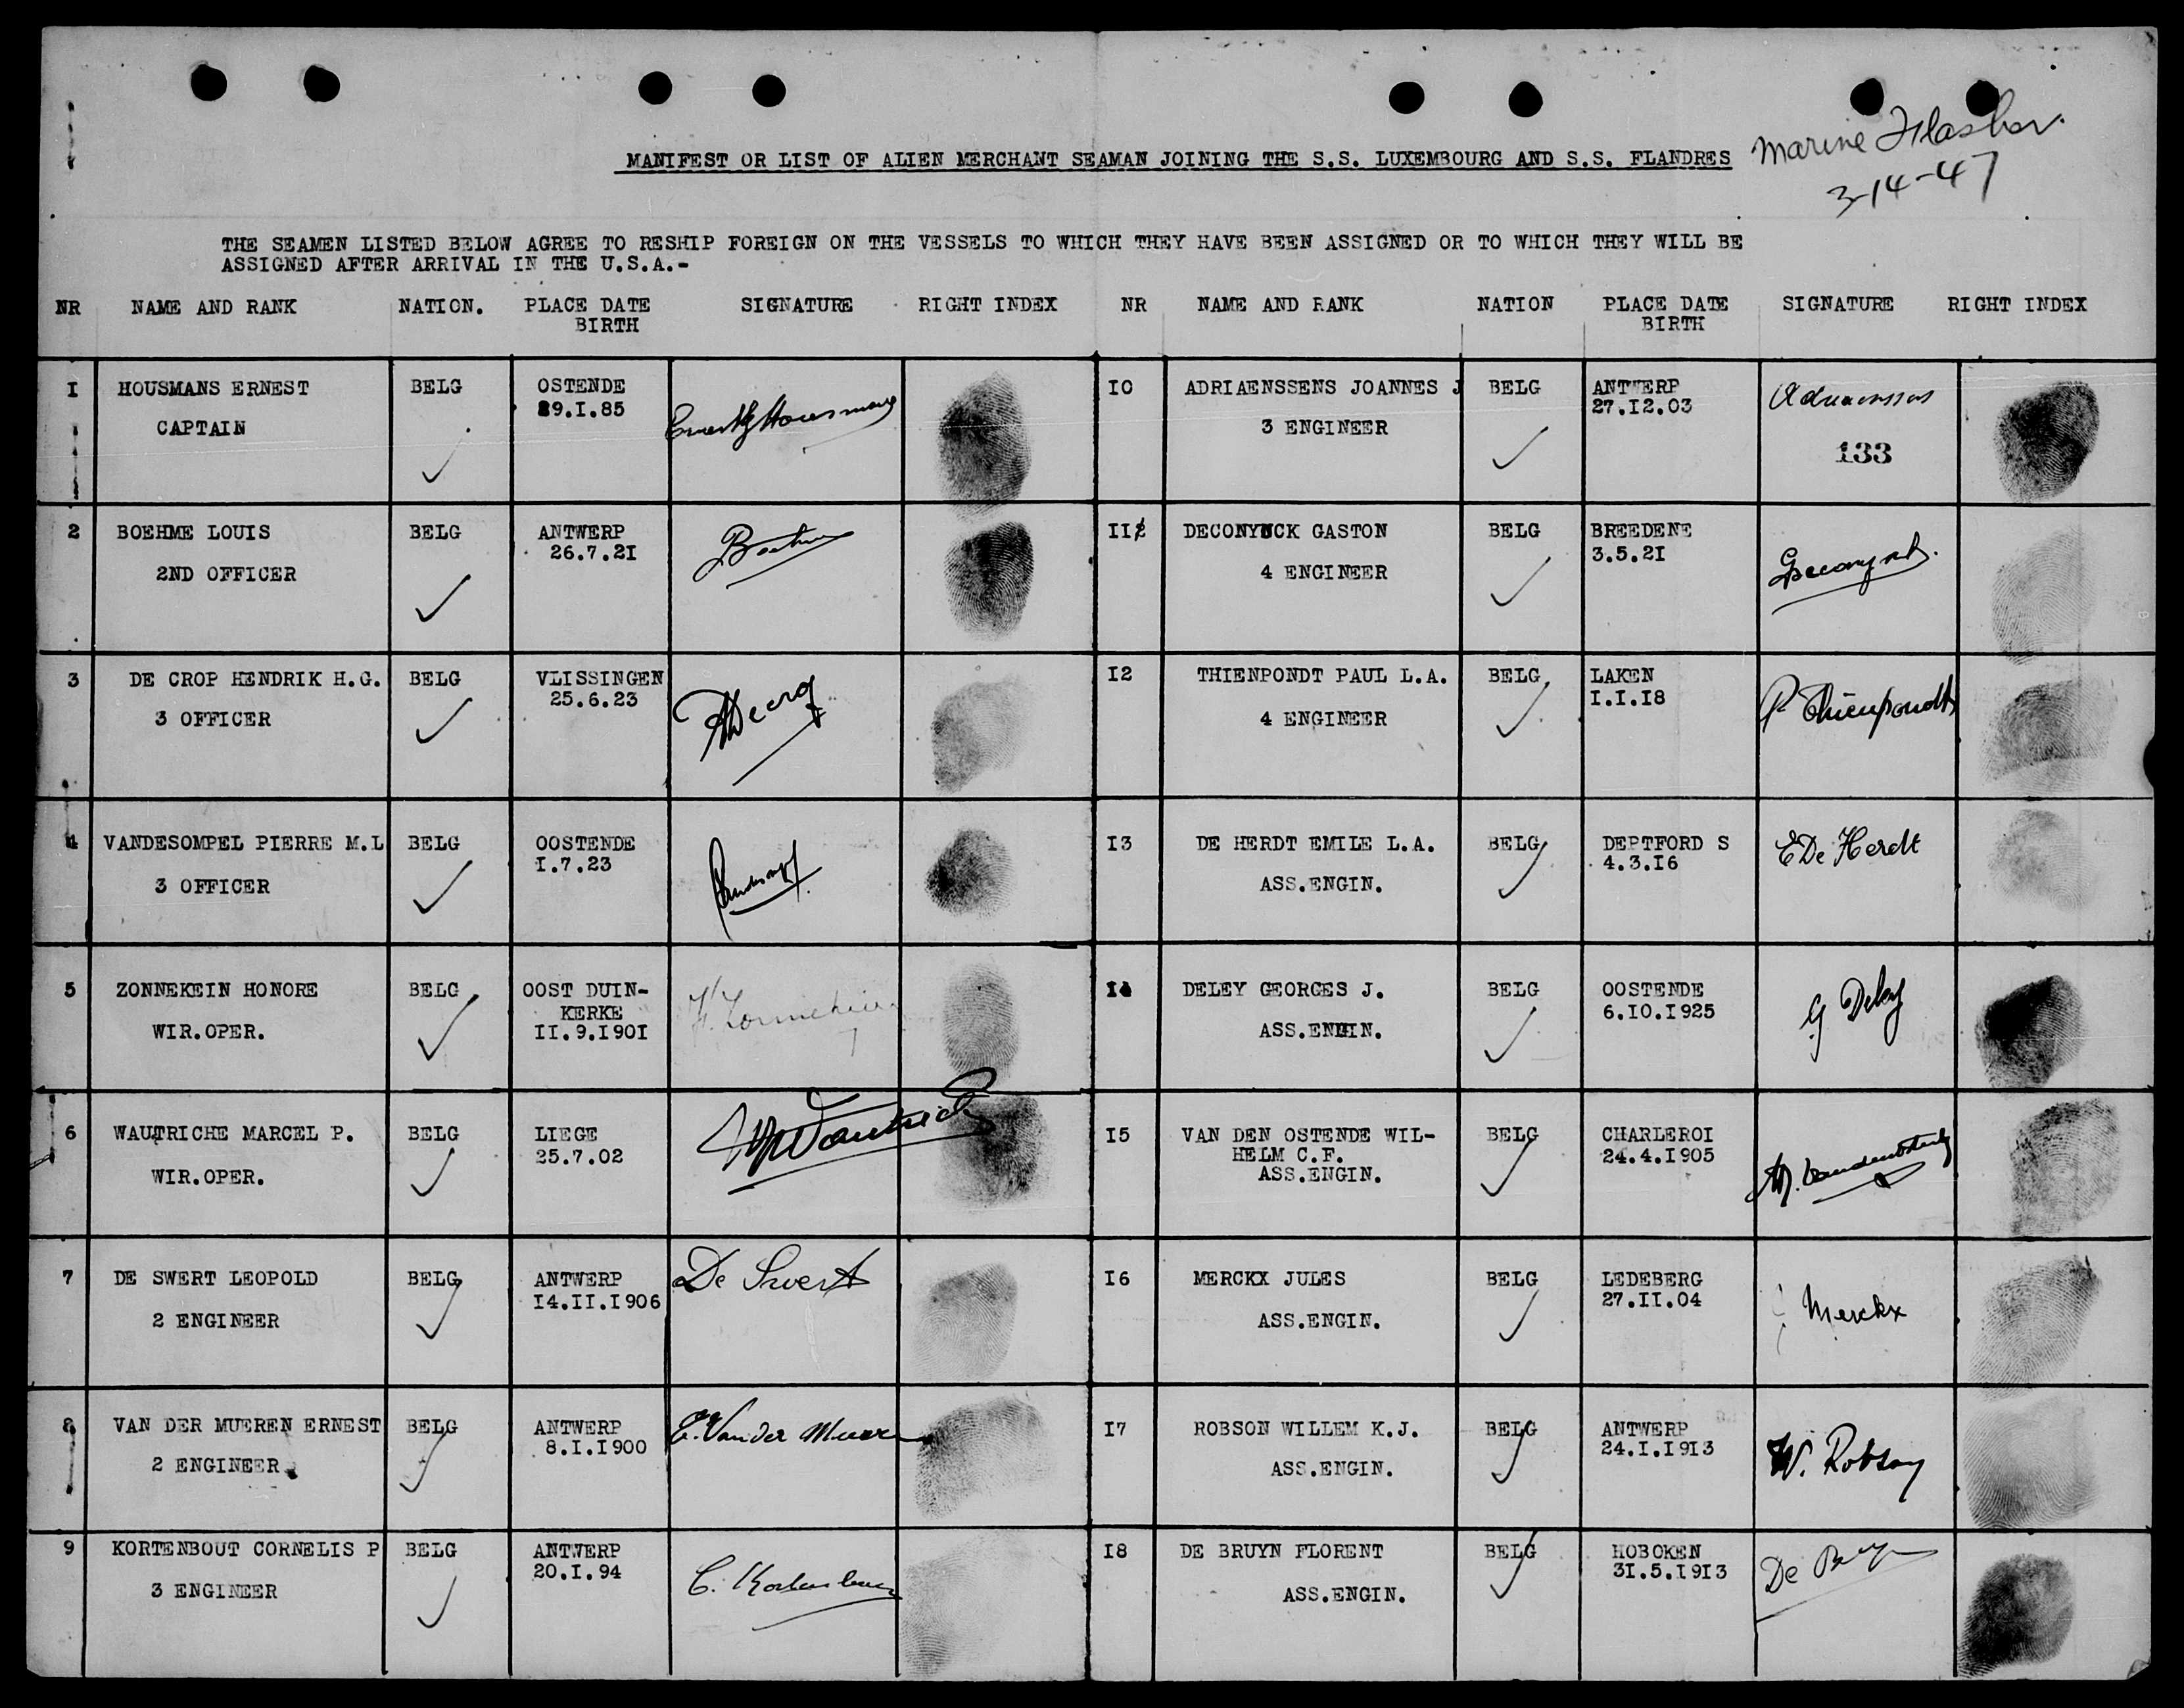 Marine Flasher.
3-14-47
MANIFEST OR LIST OF ALIEN MERCHANT SEAMAN JOINING THE S.S. LUXEMBOURG AND S.S. FLANDRES
THE SEAMEN LISTED BELOW AGREE TO RESHIP FOREIGN ON THE VESSELS TO WHICH THEY HAVE BEEN ASSIGNED OR TO WHICH THEY WILL BE
ASSIGNED AFTER ARRIVAL IN THE U.S.A.-
NR NAME AND RANK NATION. PLACE DATE BIRTH SIGNATURE RIGHT INDEX
I HOUSMANS ERNEST BELG OSTENDE
CAPTAIN 29.I.85
2 BOEHME LOUIS BELG ANTWERP
2ND OFFICER 26.7.2I
3 DE CROP HENDRIK H.G. BELG VLISSINGEN
3 OFFICER 25.6.23
4 VANDESOMPEL PIERRE M.L BELG OOSTENDE
3 OFFICER I.7.23
5 ZONNEKEIN HONORE BELG OOST DUIN-
KERKE
WIR.OPER. II.9.I90I
6 WAUTRICHE MARCEL P. BELG LIEGE
WIR.OPER. 25.7.02
7 DE SWERT LEOPOLD BELG ANTWERP De Swert
2 ENGINEER I4.II.I906
8 VAN DER MUEREN ERNEST BELG ANTWERP E. Van der Mueren
2 ENGINEER 8.I.I900
9 KORTENBOUT CORNELIS P BELG ANTWERP
3 ENGINEER 20.I.94
NR NAME AND RANK NATION PLACE DATE BIRTH SIGNATURE RIGHT INDEX
IO ADRIAENSSENS JOANNES J BELG ANTWERP
3 ENGINEER 27.I2.03
133
II DECONYNCK GASTON BELG BREEDENE
4 ENGINEER 3.5.2I
I2 THIENPONDT PAUL L.A. BELG LAKEN P. Thienpondt
4 ENGINEER I.I.I8
I3 DE HERDT EMILE L.A. BELG DEPTFORD S E De Herdt
ASS.ENGIN. 4.3.I6
I4 DELEY GEORGES J. BELG OOSTENDE G Deley
ASS.ENGIN. 6.IO.I925
I5 VAN DEN OSTENDE WIL- BELG CHARLEROI
HELM C.F. 24.4.I905
ASS.ENGIN.
I6 MERCKX JULES BELG LEDEBERG Merckx
ASS.ENGIN. 27.II.04
I7 ROBSON WILLEM K.J. BELG ANTWERP W. Robson
ASS.ENGIN. 24.I.I9I3
I8 DE BRUYN FLORENT BELG HOBOKEN De Bruyn
ASS.ENGIN. 3I.5.I9I3